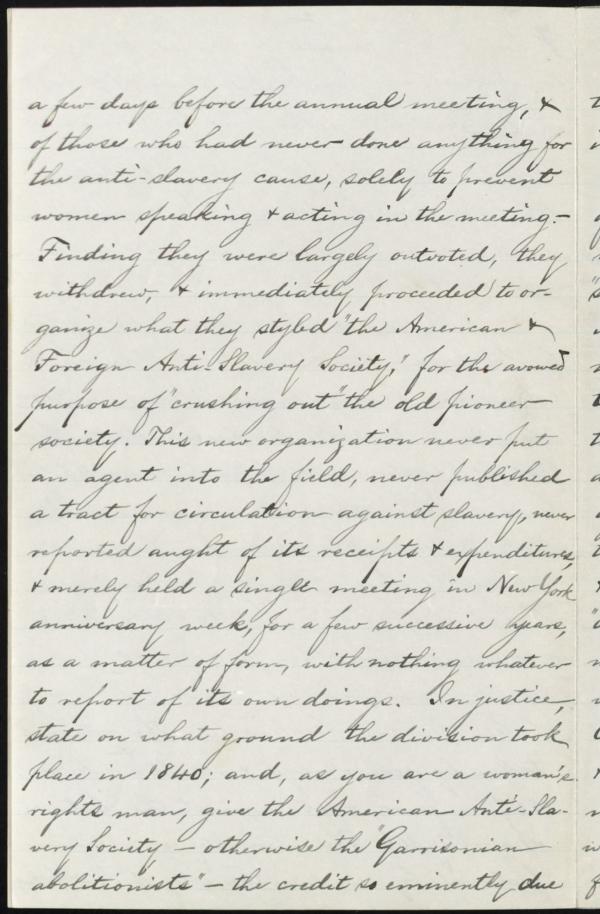 a few days before the annual meeting, &
of those who had never done anything for
the anti-slavery cause, solely to prevent
women speaking & acting in the meeting.—
Finding they were largely outvoted, they
withdrew, & immediately proceeded to or-
ganize what they styled "the American &
Foreign Anti-Slavery Society," for the avowed
purpose of "crushing out" the old pioneer
society. This new organization never put
an agent into the field, never published
a tract for circulation against slavery, never
reported aught of its receipts & expenditures,
& merely held a single meeting in New York
anniversary week, for a few successive years,
as a matter of form, with nothing whatever
to report of its own doings. In justice,
state on what ground the division took
place in 1840; and, as you are a woman's
rights man, give the American Anti-Sla-
very Society — otherwise the "Garrisonian
abolitionists" — the credit so eminently due